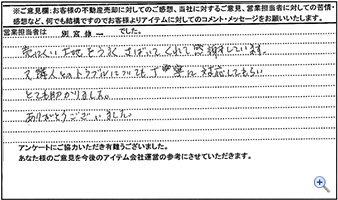 ※ご意見欄：お客様の不動産売却に対してのご感想、当社に対するご意見、営業担当者に対しての苦情・
感想など、何でも結構ですのでお客様よりアイテムに対してのコメント・メッセージをお願いいたします。
営業担当者は 別宮 修一 でした。
売にくい土地をうまくさばいてくれて感謝しています。
又隣人とのトラブルについても丁寧に対応してもらい
とても助かりました。
ありがとうございました。
アンケートにご協力いただき有難うございました。
あなた様のご意見を今後のアイテム会社運営の参考にさせていただきます。